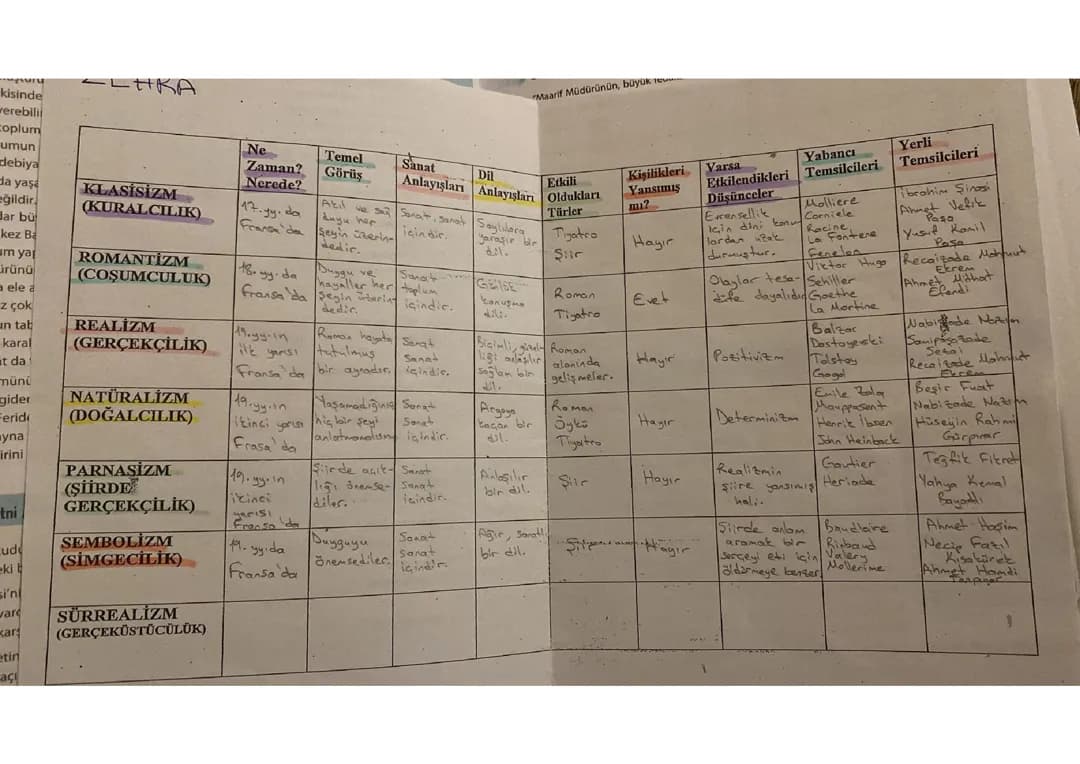 ZEHRA
"Maarif Müdürünün, büyük
kisinde
verebili
toplum
umun
debiya
da yaşa
eğildir.
lar bü
kez Ba
um yap
ürünü
a ele a
z çok
un tab
karal
t da
münü
gider
Feride
yna
irini
tni
Ne Zaman? Nerede?
Temel Görüş
Sanat Anlayışları
Dil Anlayışları
Etkili Oldukları Türler
Kişilikleri Yansımış mı?
Varsa Etkilendikleri Düşünceler
Yabancı Temsilcileri
Yerli Temsilcileri
KLASİSİZM
(KURALCILIK)
17.yy.da
Fransa'da
Akıl ve sağ
duyu her
şeyin üzerin-
dedir.
Sanat, sanat
içindir.
Saylılara
yaraşır bir
dil.
Tiyatro
Şiir
Hayır
Evrensellik
için dini konu
lardan uzak
durmuştur.
Molliere
Corniele
Racine,
La Fontene
Fenelon
İbrahim Şinasi
Ahmet Vefik
Paşa
Yusuf Kamil
Paşa
ROMANTİZM
(COŞUMCULUK)
18.yy.da
Fransa'da
Duygu ve
hayaller her
şeyin üzerin-
dedir.
Sanat
toplum
içindir.
Günlük
konuşma
dili.
Roman
Tiyatro
Evet
Olaylar tesa-
düfe dayalıdır
Viktor Hugo
Schiller
Goethe
La Mortine
Recaizade Mahmut
Ekrem
Ahmet Mithat
Efendi
REALİZM
(GERÇEKÇİLİK)
19.yy.ın
ilk yarısı
Fransa'da
Roman hayata
tutulmuş
bir aynadır.
Sanat
sanat
içindir.
Biçimli, güzel-
liği anlaşılır
sağlam bir
dil.
Roman
alanında
gelişmeler.
Hayır
Pozitivizm
Balzac
Dostoyevski
Tolstoy
Gogol
Nabizade Nazım
Samipaşazade
Sezai
Recaizade Mahmut
Ekrem
NATÜRALİZM
(DOĞALCILIK)
19.yy.ın
ikinci yarısı
Frasa'da
Yaşamadığınız
hiçbir şeyi
Sanat
Sanat
içindir.
Argoya
kaçan bir
dil.
Roman
Öykü
Tiyatro
Hayır
Determinizm
Emile Zola
Mauppasent
Henrik İbsen
John Heinback
Beşir Fuat
Nabizade Nazım
Hüseyin Rahmi
Gürpınar
PARNASİZM
(ŞİİRDE
GERÇEKÇİLİK)
19.yy.ın
ikinci
yarısı
Fransa'da
Şiirde açık-
lığı önemse-
diler.
Sanat
Sanat
içindir.
Anlaşılır
bir dil.
Şiir
Hayır
Realizmin
şiire yansımış
hali.
Gautier
Heriade
Tevfik Fikret
Yahya Kemal
Bayatlı
SEMBOLİZM
(SİMGECİLİK)
19.yy.da
Fransa'da
Duyguyu
önemsediler.
Sanat
sanat
içindir.
Ağır, sanatlı
bir dil.
Hayır
Şiirde anlam
aramak bir
serçeyi eti için
öldürmeye benzer.
Baudlaire
Rimbaud
Valery
Mallerime
Ahmet Haşim
Necip Fazıl
Kısakürek
Ahmet Hamdi
Tanpınar
SÜRREALİZM
(GERÇEKÜSTÜCÜLÜK)